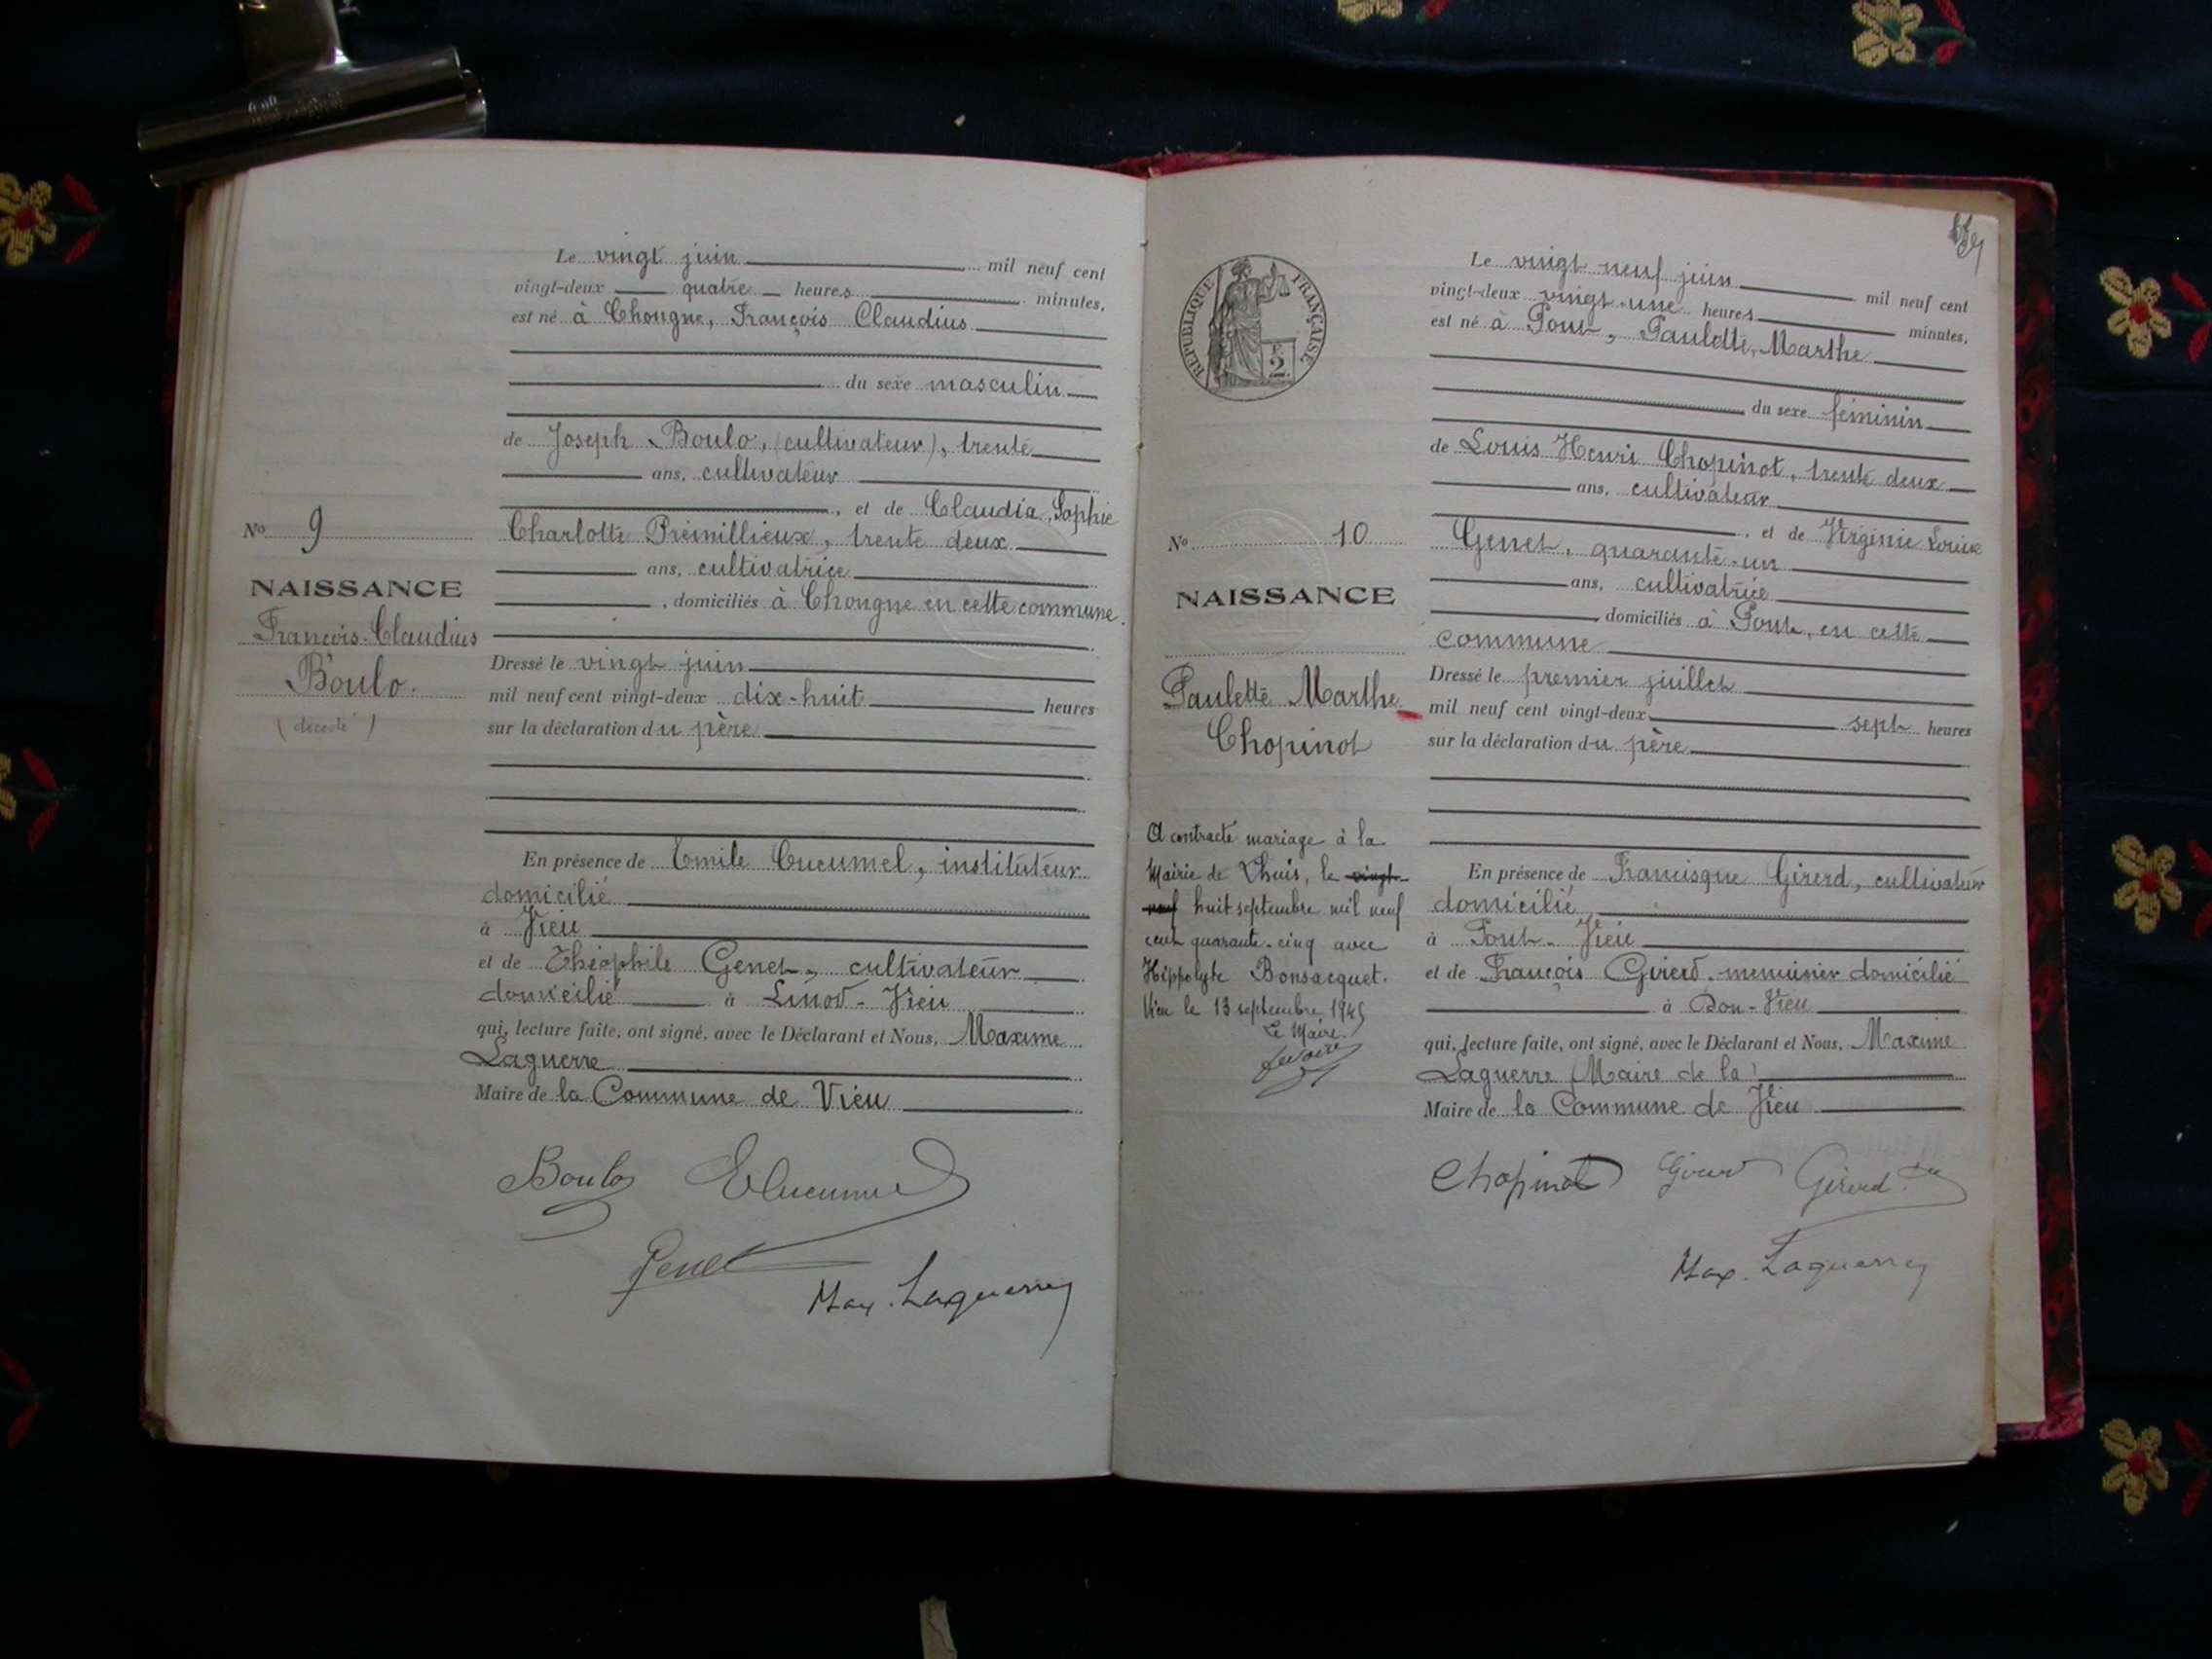 Le vingt juin mil neuf cent
vingt-deux quatre heures minutes,
est né à Chongne, François Claudius
du sexe masculin
de Joseph Boulo, (cultivateur), trente
ans, cultivateur
, et de Claudia, Sophie
Charlotte Prémillieux, trente deux
ans, cultivatrice
, domiciliés à Chongne en cette commune.
No 9
NAISSANCE
François-Claudius
Boulo.
(décédé)
Dressé le vingt juin
mil neuf cent vingt-deux dix-huit heures
sur la déclaration du père
En présence de Emile Cucumel, instituteur
domicilié
à Vieu
et de Théophile Genet, cultivateur
domicilié à Linod-Vieu
qui, lecture faite, ont signé, avec le Déclarant et Nous, Maxime
Laguerre
Maire de la Commune de Vieu
Boulo ECucumel
Genet
Max. Laguerre
REPUBLIQUE FRANÇAISE
2
Le vingt neuf juin mil neuf cent
vingt-deux vingt-une heures minutes,
est né à Pont, Paulette, Marthe
du sexe féminin
de Louis Henri Chopinot, trente deux
ans, cultivateur
, et de Virginie
Genet, quarante-un
ans, cultivatrice
domiciliés à Pont, en cette
commune
No 10
NAISSANCE
Paulette Marthe
Chopinot
Dressé le premier juillet
mil neuf cent vingt-deux sept heures
sur la déclaration du père
A contracté mariage à la
Mairie de Lhuis, le vingt
neuf huit septembre mil neuf
cent quarante-cinq avec
Hippolyte Bonsacquet.
Vieu le 13 septembre 1945
Le Maire.
En présence de Francisque Girerd, cultivateur
domicilié
à Pont-Vieu
et de François Girerd, menuisier domicilié
à Don-Vieu
qui, lecture faite, ont signé, avec le Déclarant et Nous, Maxime
Laguerre Maire de la
Maire de la Commune de Vieu
Chopinot Girerd Girerd
Max. Laguerre